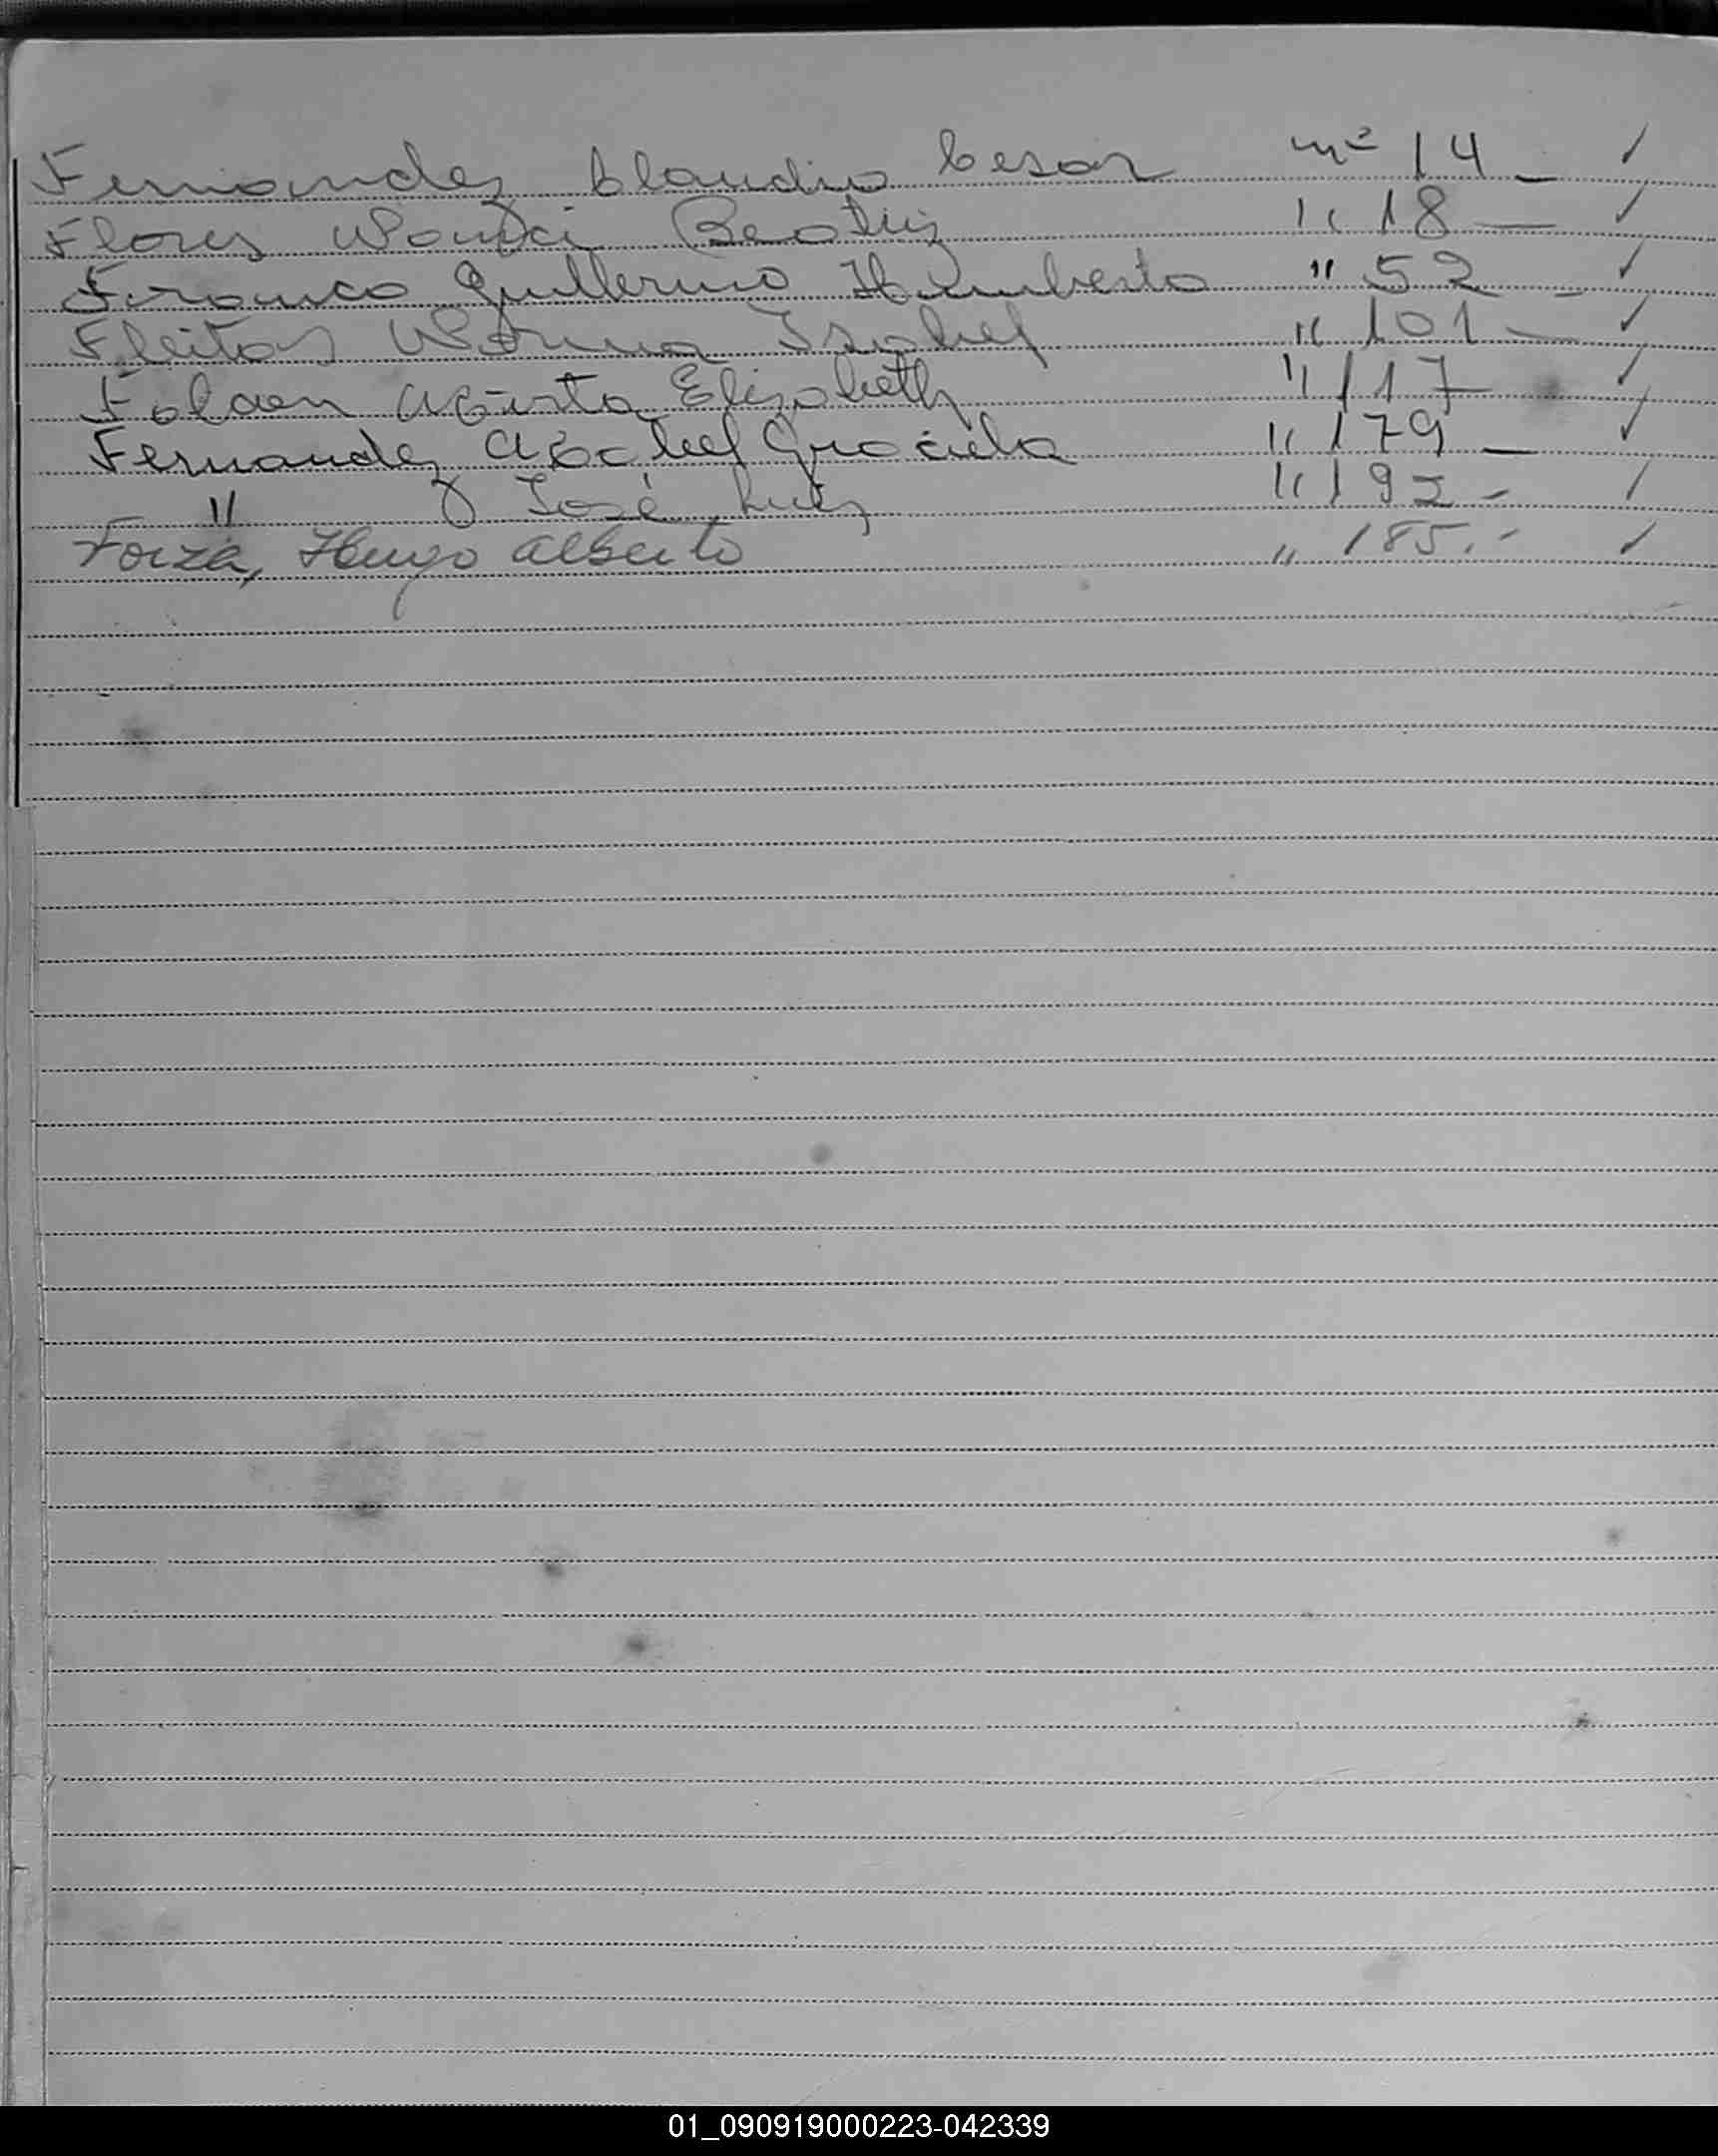 Fernandez Claudio Cesar nº 14 — ✓
Flores Beatriz " 18 — ✓
Franco Guillermo Humberto " 52 — ✓
Fleitas Norma Isabel " 101 — ✓
Elizabeth " 117 — ✓
Fernandez Graciela " 179 — ✓
" José Luis " 192 — ✓
Forza, Hugo Alberto " 185.- ✓
01_090919000223-042339